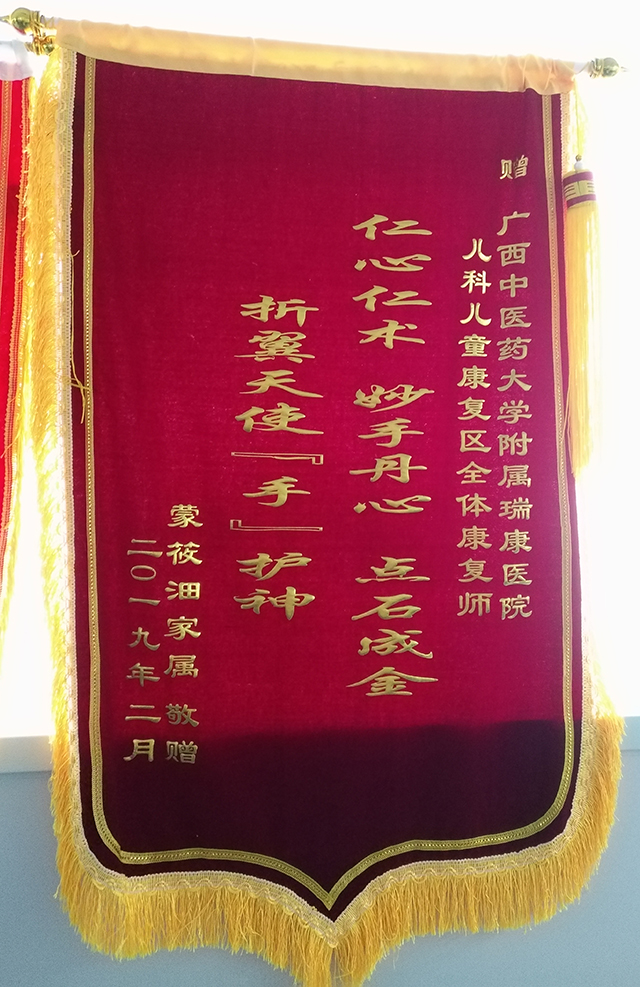 赠 广西中医药大学附属瑞康医院
儿科儿童康复区全体康复师
仁心仁术 妙手丹心 点石成金
折翼天使『手』护神
蒙莜沺家属 敬赠
二〇一九年二月